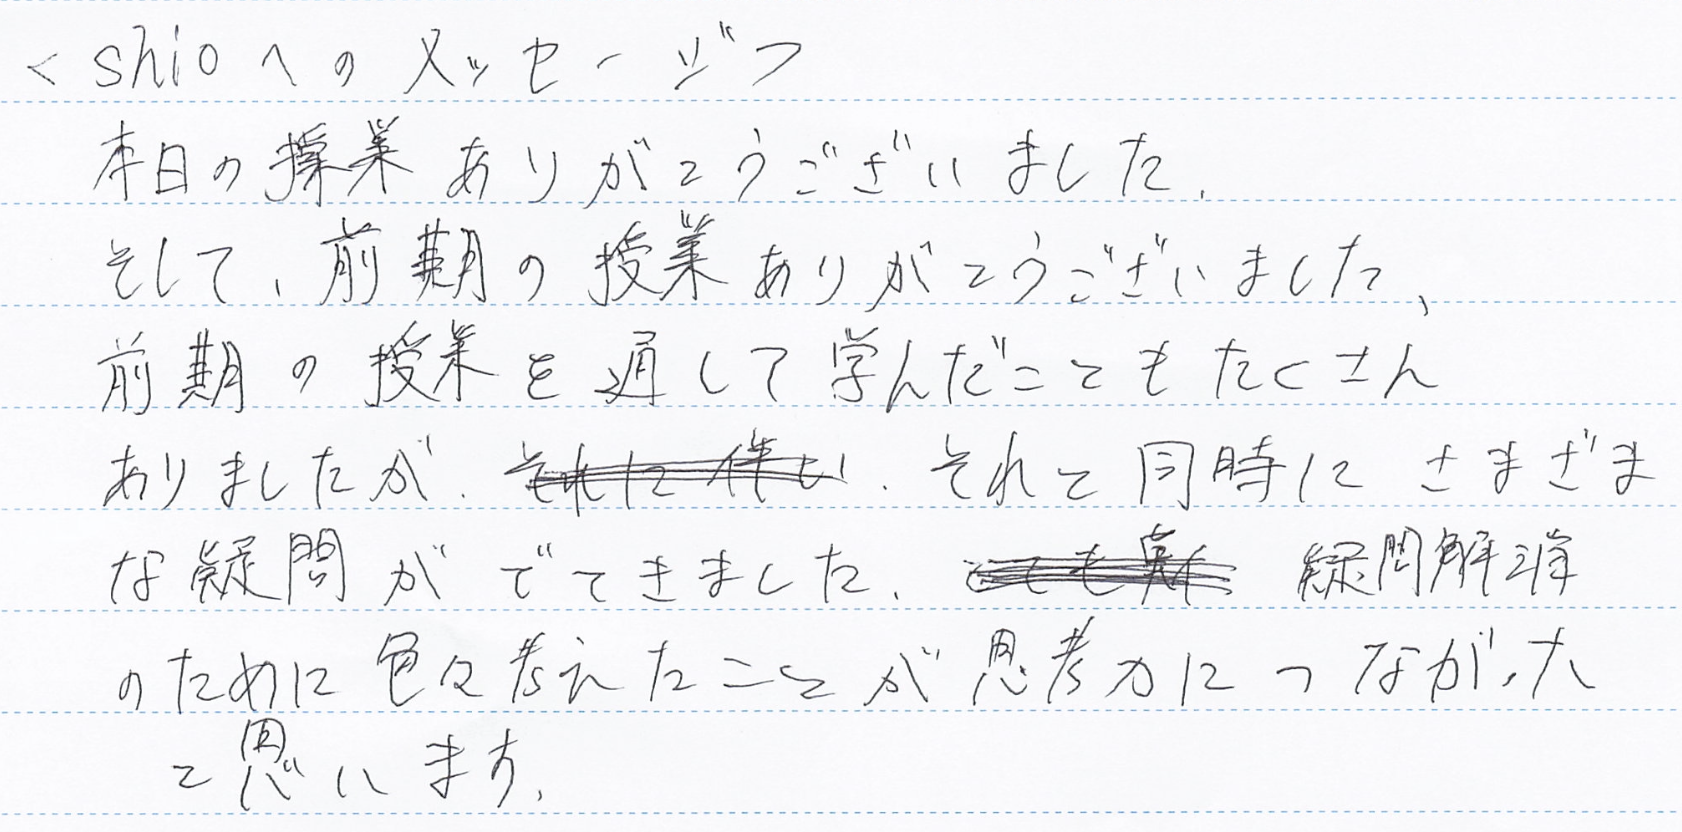 <shioへのメッセージ>
本日の授業ありがとうございました。
そして、前期の授業ありがとうございました、
前期の授業を通して学んだこともたくさん
ありましたが、それに伴い、それと同時にさまざま
な疑問がでてきました。疑問解消
のために色々考えたことが思考力につながった
と思います。